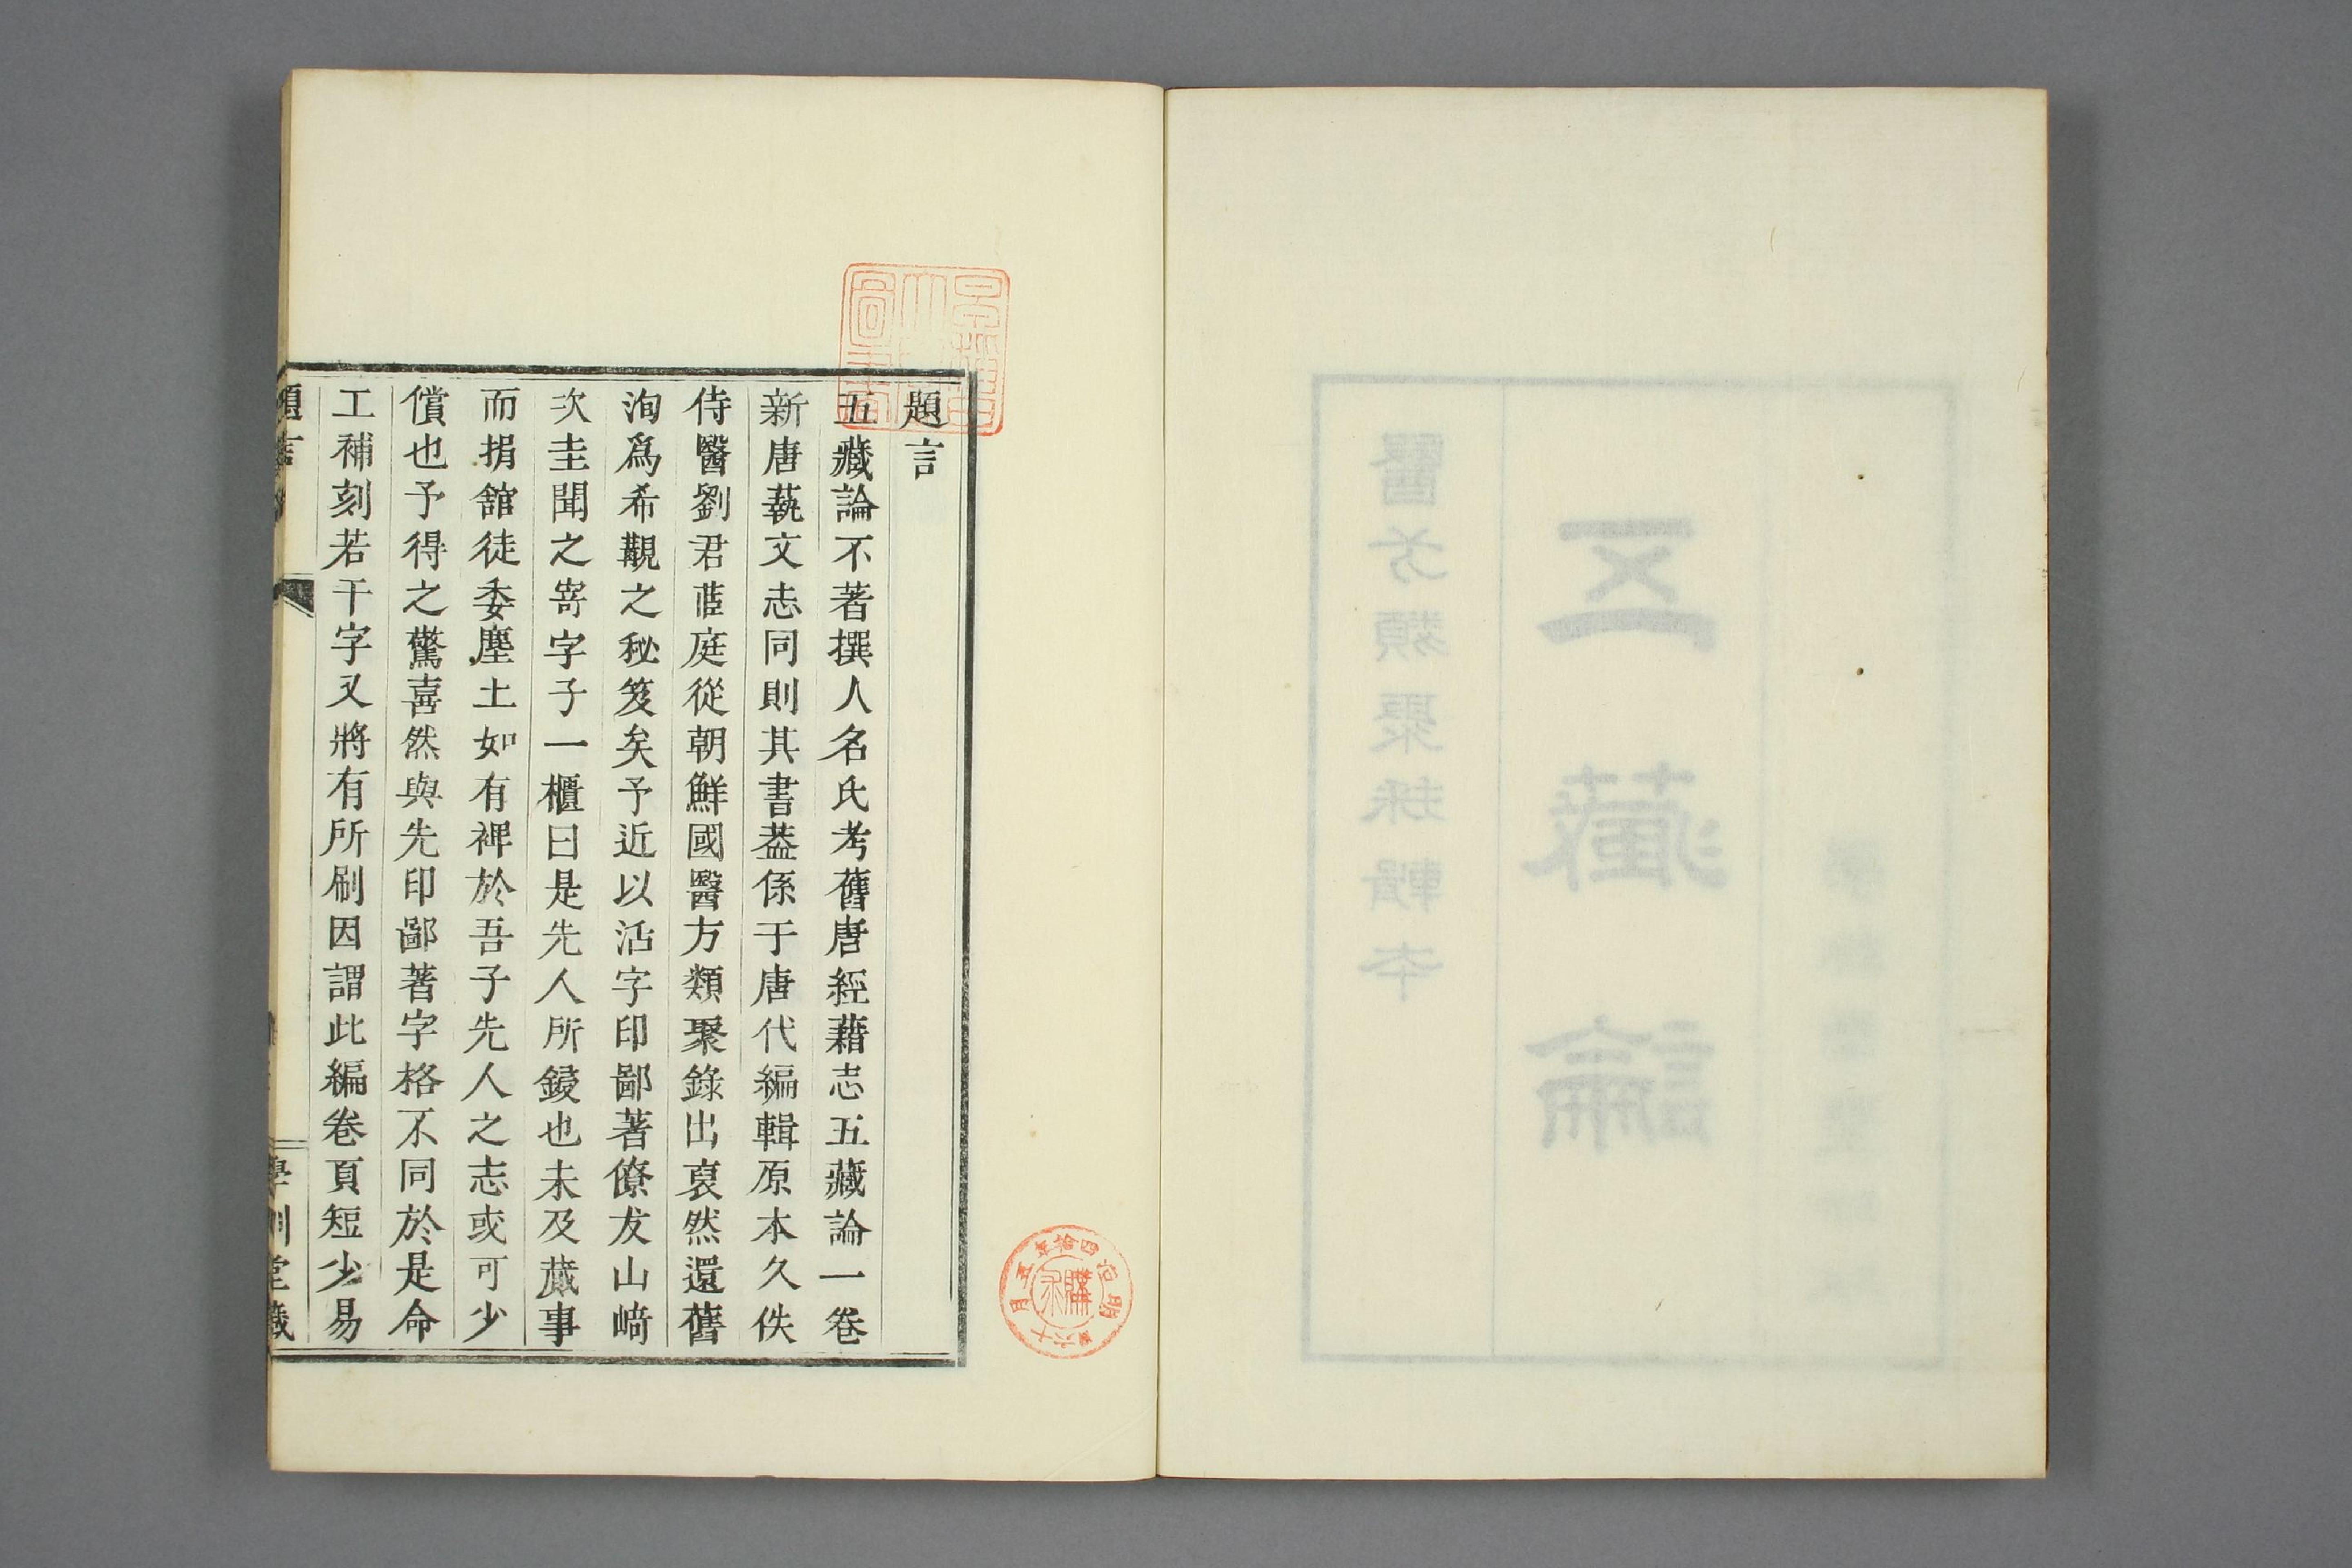 五藏論
醫方類聚採輯本
題言
五藏論不著撰人名氏考舊唐經藉志五藏論一卷
新唐蓺文志同則其書葢係于唐代編輯原本久佚
侍醫劉君茝庭從朝鮮國醫方類聚錄出裒然還舊
洵爲希覯之秘笈矣予近以活字印鄙著僚友山﨑
次圭聞之寄字子一櫃曰是先人所鋟也未及蕆事
而捐舘徒委塵土如有裨於吾子先人之志或可少
償也予得之驚喜然與先印鄙著字格不同於是命
工補刻若干字又將有所刷因謂此編卷頁短少易
題言
學訓堂藏